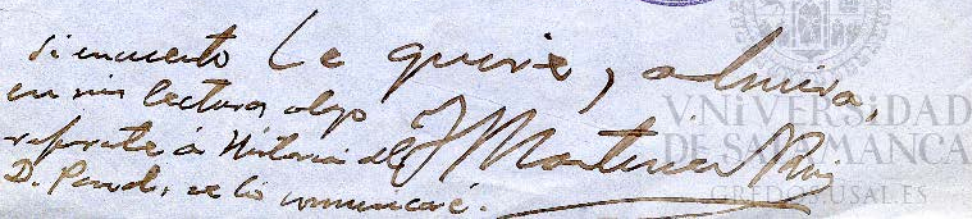 Si encuentro
en mis lecturas algo
referente á Historia del
D. Penal, se lo comunicaré.
Le quiere, admira,
J Martínez Ruiz
VNiVERSiDAD
DE SALAMANCA
GREDOS.USAL.ES